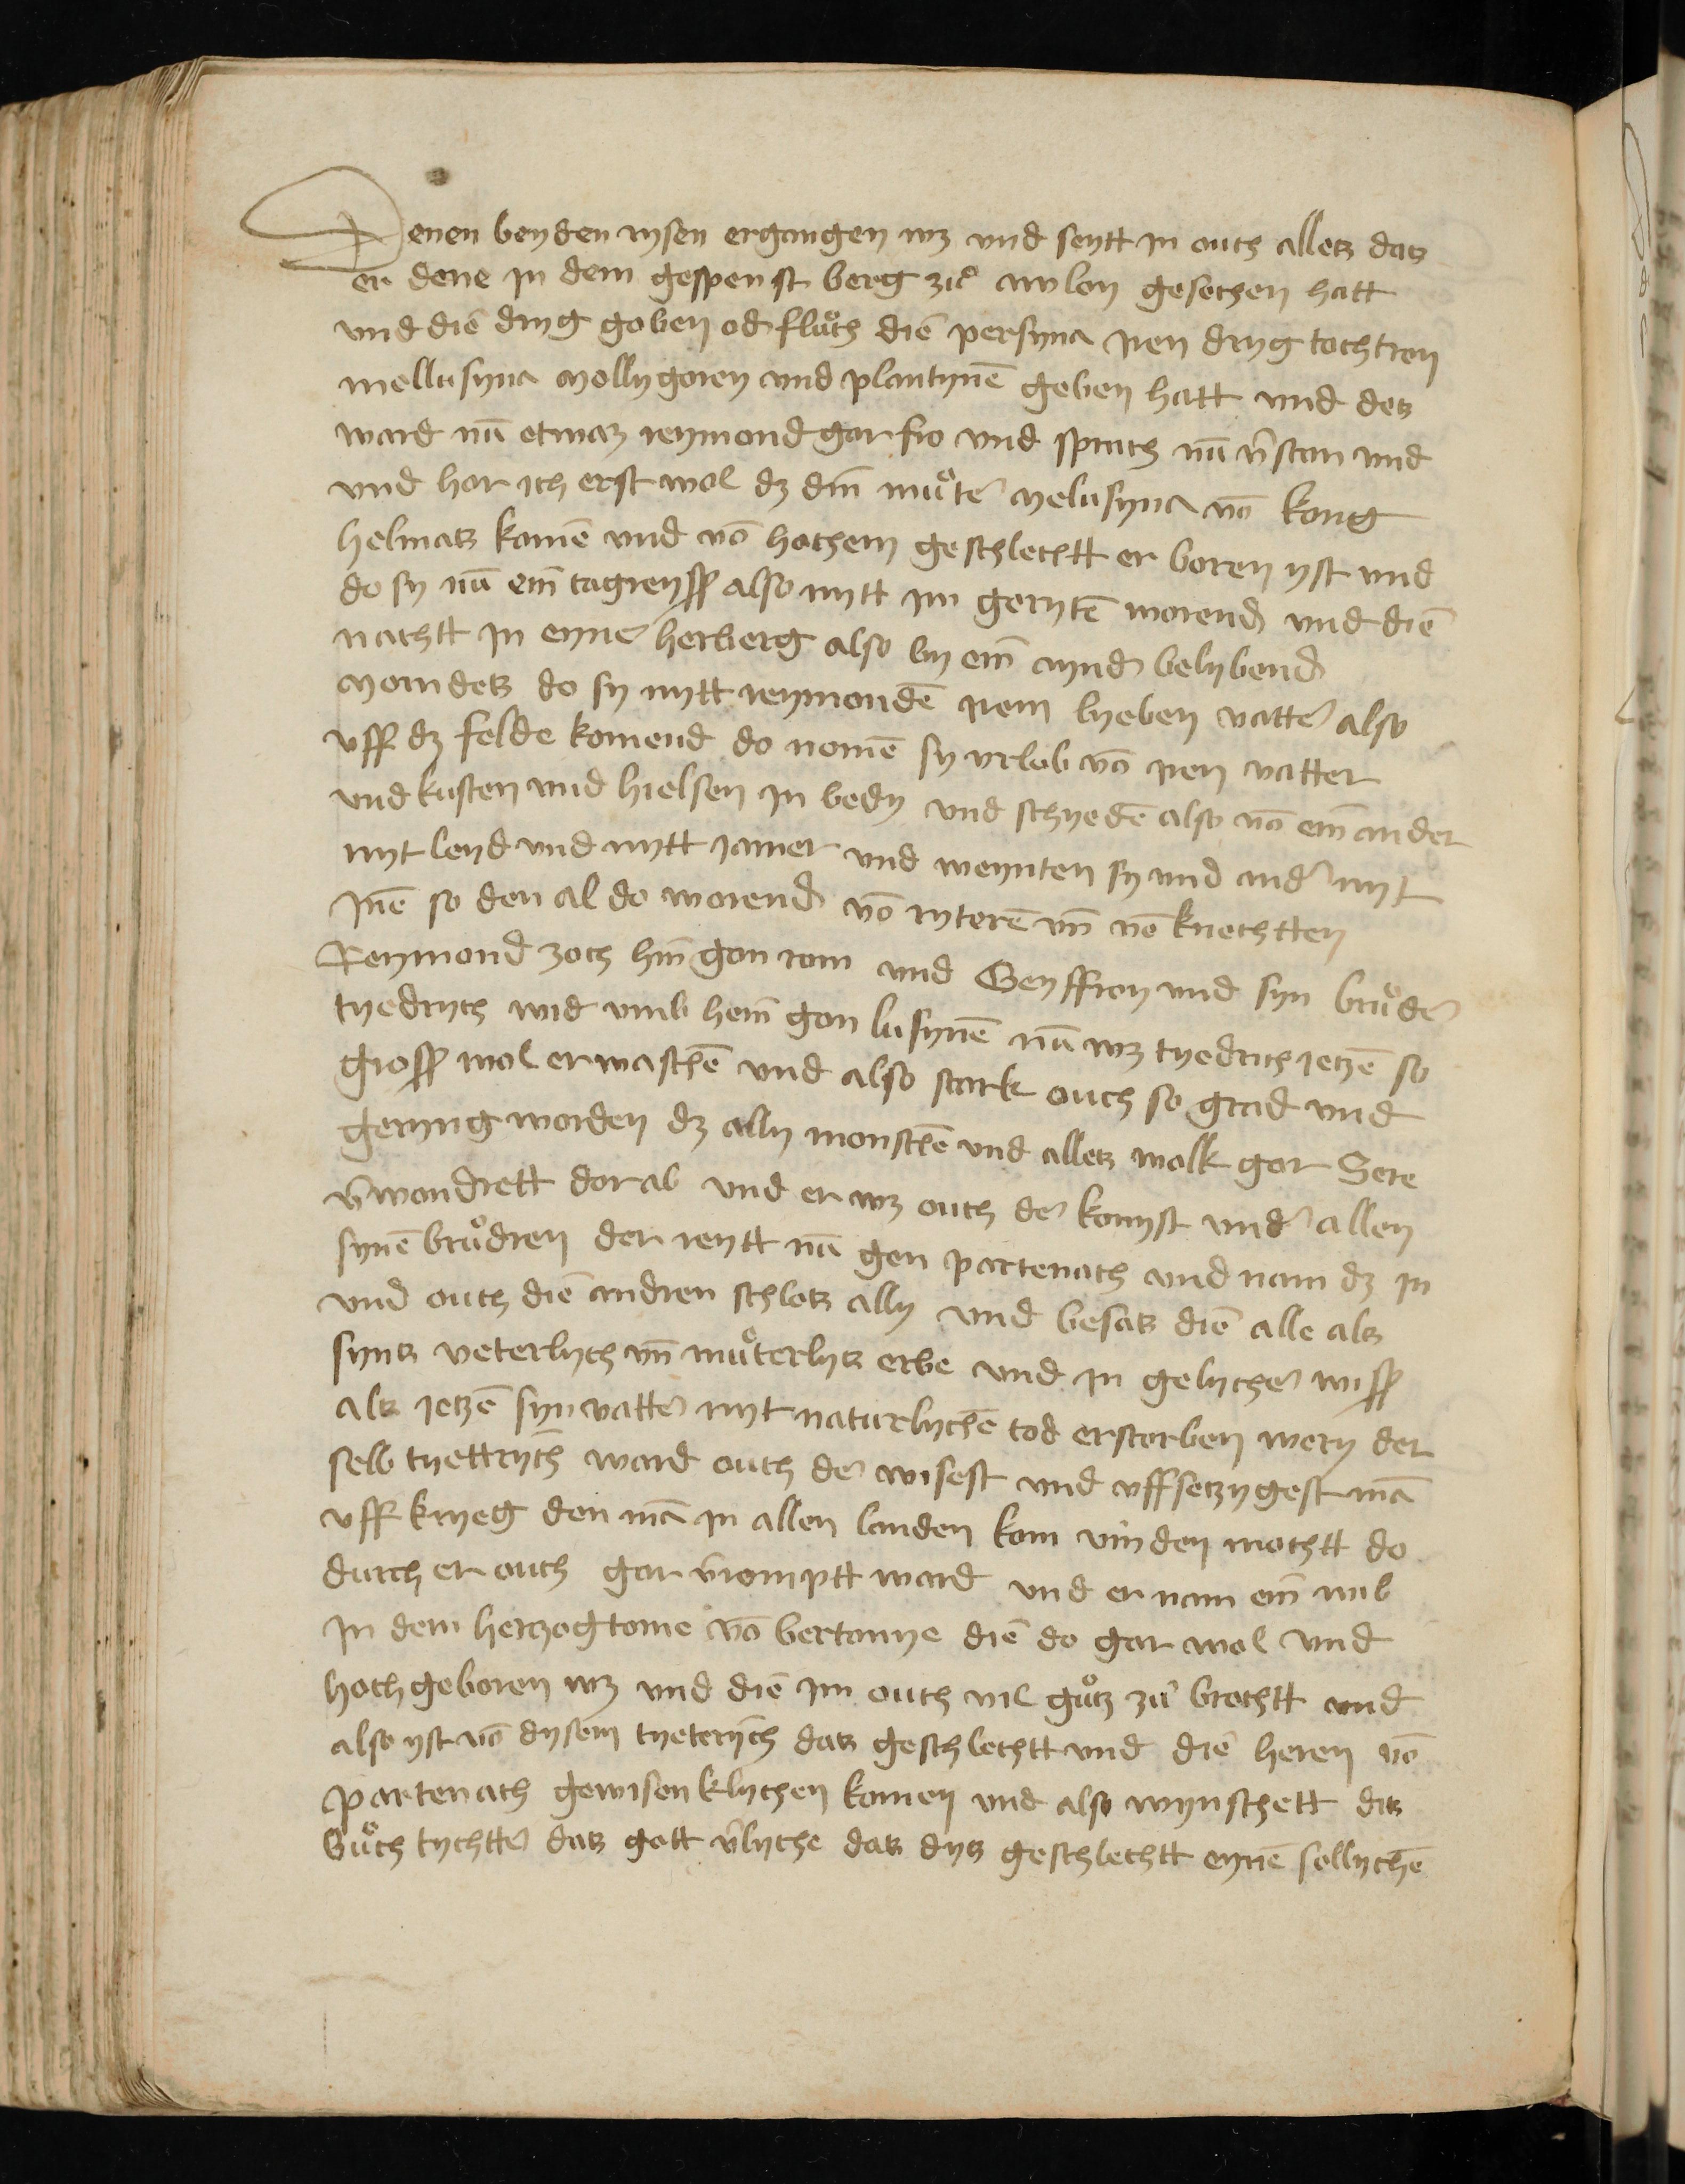 Denen beyden rysen ergangen wz und seytt in ouch alletz datz
er dene in dem gespenst berg zuͦ awlon gesechen hatt
und die dryg goben od fluͦch die persyna iren dryg tochtren
mellusyna mellygoren und plantynē geben hatt und detz
ward nū etwaz reymond gar fro und sprach nū v̄stan und
und hor ich erst wol dz din̄ muͦter melusyna vō kong
helmatz komē und vō hochem geschlechtt er boren yst und
do sy nū ein̄ tagreyß also mytt im gerytē worend und die
nachtt in eyner herberg also by ein̄ aynd belybend
morndetz do sy mytt reymondē irem lyeben vatter also
uff dz felde komend do nomē sy urlob vō iren vatter
und kusten und hielsen in bedy und schyedē also vō ein̄ ander
myt leyd und mytt jamer und weynten sy und ander myt
inē so den al do worend vō ryterē un̄ vō knechtten
Reymond zoch hin̄ gon rom und Geyffroy und syn bruͦder
tyedrych wid umb hein̄ gon lusynē nū wz tyedrich ietzē so
groß wol erwaschē und also stark ouch so grad und
geryng worden dz ally monschē und alletz walk gar Sere
v̄wondrett dorab und er wz ouch der konyst under allen
synē bruͦdren der reytt nū gen partenach und nam dz in
und ouch die andren schlotz ally und besatz die alle alz
syntz veterlych un̄ muͦterlytz erbe und in gelycher wiß
alz ietzē syn vatter myt naturlychē tod erstorben wery der
selb tyettrych ward ouch der wisest und uffsetzygest mā
uff kryeg den mā in allen landen kom vinden mochtt do
durch er ouch gar v̄romptt ward und er nam ein̄ wib
in dem hertzogtome vō bertonye die do gar wol und
hoch geboren wz und die im ouch vil guͦtz zuͦ brochtt und
also yst vō dysem tyeterych datz geschlechtt und die heren vō
partenach gewisenklychen komen und also wynschett ditz
buͦch tychtter datz gott v̄lyche datz dytz geschlechtt eynē sollychē